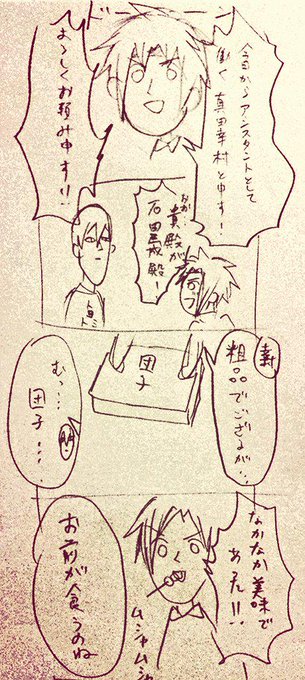 ドーン
今日からアシスタントとして
働く真田幸村と申す!
よろしくお頼み申す!!
おお…貴殿が
石田三成殿!
幸
粗品でござるが…
団子
むっ…
団子…
なかなか美味で
あった!!
ムシャムシャ
お前が食うのね